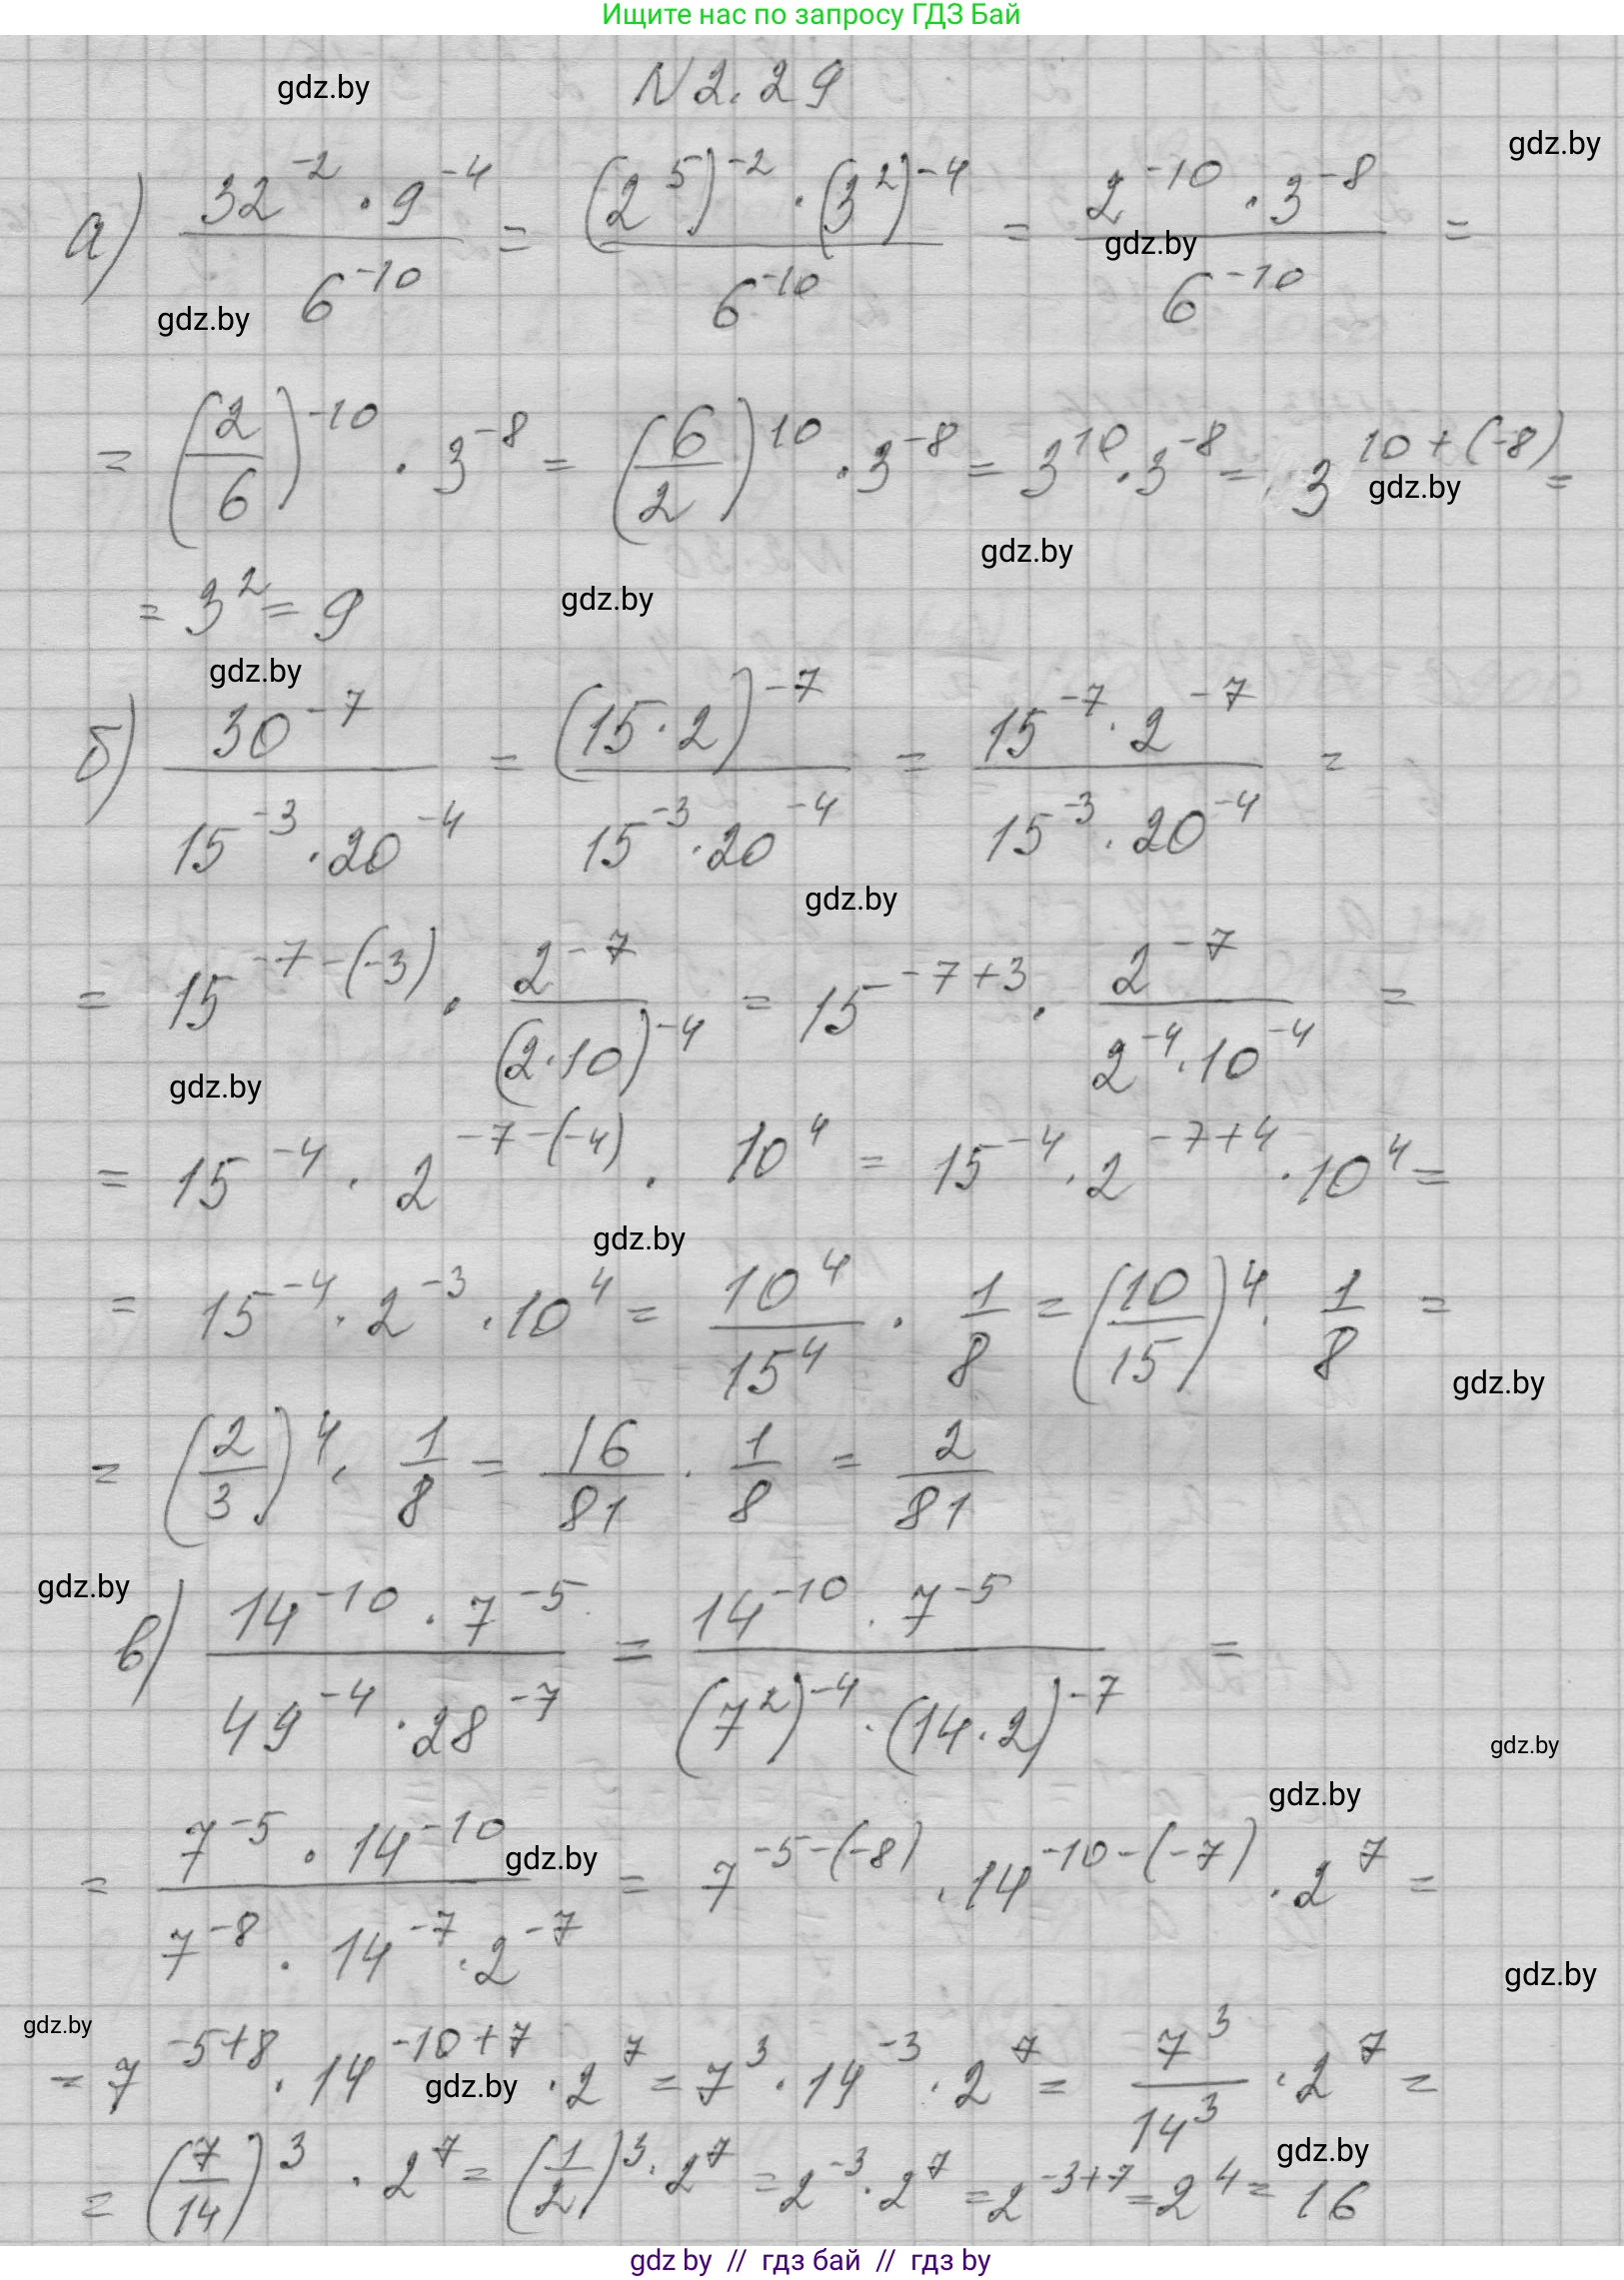 Ищите нас по запросу ГДЗ Бай
N 2.29
gdz.by
gdz.by
а) \frac{32^{-2} \cdot 9^{-4}}{6^{-10}} = \frac{(2^5)^{-2} \cdot (3^2)^{-4}}{6^{-10}} = \frac{2^{-10} \cdot 3^{-8}}{6^{-10}} =
gdz.by
gdz.by
= (\frac{2}{6})^{-10} \cdot 3^{-8} = (\frac{6}{2})^{10} \cdot 3^{-8} = 3^{10} \cdot 3^{-8} = 3^{10+(-8)} =
gdz.by
gdz.by
= 3^2 = 9
gdz.by
gdz.by
б) \frac{30^{-7}}{15^{-3} \cdot 20^{-4}} = \frac{(15 \cdot 2)^{-7}}{15^{-3} \cdot 20^{-4}} = \frac{15^{-7} \cdot 2^{-7}}{15^{-3} \cdot 20^{-4}} =
gdz.by
= 15^{-7-(-3)} \cdot \frac{2^{-7}}{(2 \cdot 10)^{-4}} = 15^{-7+3} \cdot \frac{2^{-7}}{2^{-4} \cdot 10^{-4}} =
gdz.by
= 15^{-4} \cdot 2^{-7-(-4)} \cdot 10^4 = 15^{-4} \cdot 2^{-7+4} \cdot 10^4 =
gdz.by
= 15^{-4} \cdot 2^{-3} \cdot 10^4 = \frac{10^4}{15^4} \cdot \frac{1}{8} = (\frac{10}{15})^4 \cdot \frac{1}{8} =
gdz.by
= (\frac{2}{3})^4 \cdot \frac{1}{8} = \frac{16}{81} \cdot \frac{1}{8} = \frac{2}{81}
gdz.by
в) \frac{14^{-10} \cdot 7^{-5}}{49^{-4} \cdot 28^{-7}} = \frac{14^{-10} \cdot 7^{-5}}{(7^2)^{-4} \cdot (14 \cdot 2)^{-7}} =
gdz.by
gdz.by
= \frac{7^{-5} \cdot 14^{-10}}{7^{-8} \cdot 14^{-7} \cdot 2^{-7}} = 7^{-5-(-8)} \cdot 14^{-10-(-7)} \cdot 2^7 =
gdz.by
gdz.by
gdz.by
= 7^{-5+8} \cdot 14^{-10+7} \cdot 2^7 = 7^3 \cdot 14^{-3} \cdot 2^7 = \frac{7^3}{14^3} \cdot 2^7 =
gdz.by
gdz.by
= (\frac{7}{14})^3 \cdot 2^7 = (\frac{1}{2})^3 \cdot 2^7 = 2^{-3} \cdot 2^7 = 2^{-3+7} = 2^4 = 16
gdz by // гдз бай // гдз by